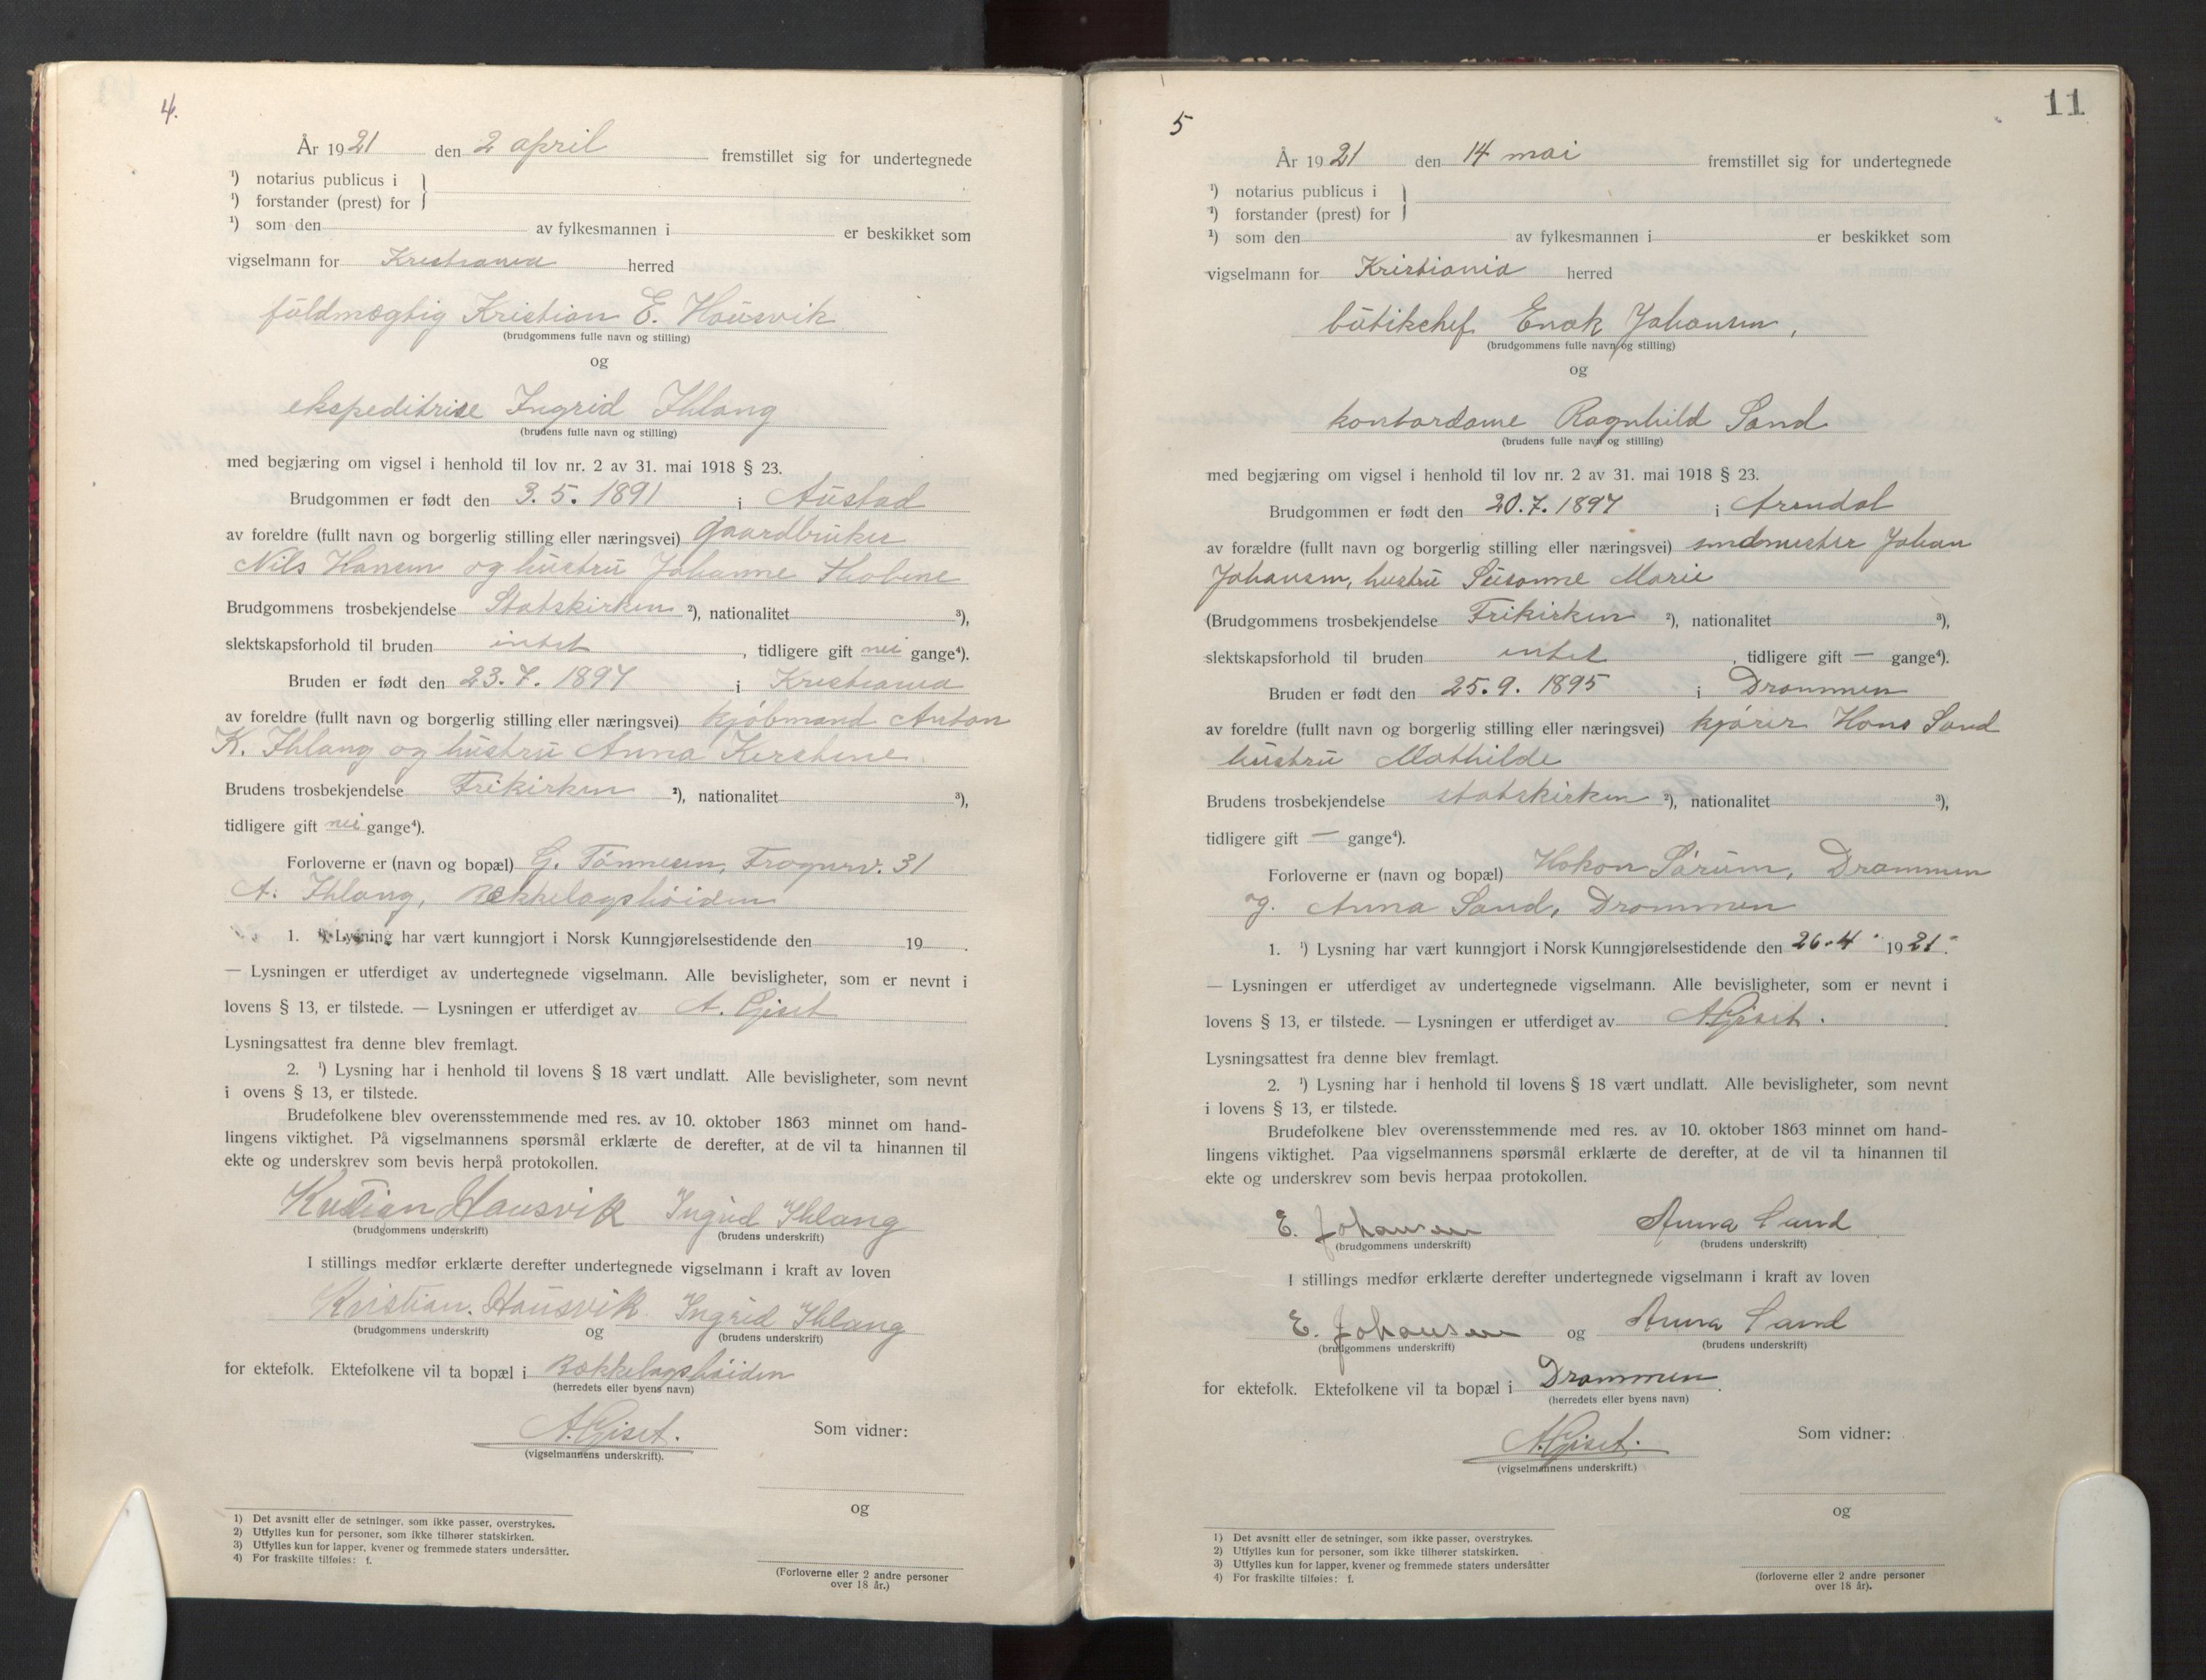 4.
År 1921 den 2 april fremstillet sig for undertegnede
¹) notarius publicus i }
¹) forstander (prest) for }
¹) som den av fylkesmannen i er beskikket som
vigselmann for Kristiania herred
fuldmægtig Kristian E. Hausvik
(brudgommens fulle navn og stilling)
og
ekspeditrise Ingrid Ihlang
(brudens fulle navn og stilling)
med begjæring om vigsel i henhold til lov nr. 2 av 31. mai 1918 § 23.
Brudgommen er født den 3.5.1891 i Austad
av foreldre (fullt navn og borgerlig stilling eller næringsvei) gaardbruker
Nils Hansen og hustru Johanne
Brudgommens trosbekjendelse Statskirken ²), nationalitet ³),
slektskapsforhold til bruden intet, tidligere gift nei gange⁴).
Bruden er født den 23.7.1897 i Kristiania
av foreldre (fullt navn og borgerlig stilling eller næringsvei) kjøbmand Anton
K. Ihlang og hustru Anna Kirstine
Brudens trosbekjendelse Frikirken ²), nationalitet ³),
tidligere gift nei gange⁴).
Forloverne er (navn og bopæl) G. Tönnesen, Frognerv. 31
A. Ihlang, Bækkelagshöiden
1. ¹) Lysning har vært kunngjort i Norsk Kunngjørelsestidende den 19 .
— Lysningen er utferdiget av undertegnede vigselmann. Alle bevisligheter, som er nevnt i
lovens § 13, er tilstede. — Lysningen er utferdiget av A. Giset
Lysningsattest fra denne blev fremlagt.
2. ¹) Lysning har i henhold til lovens § 18 vært undlatt. Alle bevisligheter, som nevnt
i ovens § 13, er tilstede.
Brudefolkene blev overensstemmende med res. av 10. oktober 1863 minnet om hand-
lingens viktighet. På vigselmannens spørsmål erklærte de derefter, at de vil ta hinannen til
ekte og underskrev som bevis herpå protokollen.
Kristian Hausvik Ingrid Ihlang
(brudgommens underskrift) (brudens underskrift)
I stillings medfør erklærte derefter undertegnede vigselmann i kraft av loven
Kristian Hausvik og Ingrid Ihlang
(brudgommens underskrift) (brudens underskrift)
for ektefolk. Ektefolkene vil ta bopæl i Bækkelagshöiden
(herredets eller byens navn)
A. Giset.
(vigselmannens underskrift).
Som vidner:
og
1) Det avsnitt eller de setninger, som ikke passer, overstrykes.
2) Utfylles kun for personer, som ikke tilhører statskirken.
3) Utfylles kun for lapper, kvener og fremmede staters undersåtter.
4) For fraskilte tilføies: f.
(Forloverne eller 2 andre personer
over 18 år.)
11
5
År 1921 den 14 mai fremstillet sig for undertegnede
¹) notarius publicus i }
¹) forstander (prest) for }
¹) som den av fylkesmannen i er beskikket som
vigselmann for Kristiania herred
butikchef Enok Johansen,
(brudgommens fulle navn og stilling)
og
kontordame Ragnhild Sand
(brudens fulle navn og stilling)
med begjæring om vigsel i henhold til lov nr. 2 av 31. mai 1918 § 23.
Brudgommen er født den 20.7.1897 i Arendal
av forældre (fullt navn og borgerlig stilling eller næringsvei) smedmester Johan
Johansen, hustru Susanne Marie
(Brudgommens trosbekjendelse Frikirken ²), nationalitet ³),
slektskapsforhold til bruden intet, tidligere gift — gange⁴).
Bruden er født den 25.9.1895 i Drammen
av foreldre (fullt navn og borgerlig stilling eller næringsvei) kjører Hans Sand
hustru Mathilde
Brudens trosbekjendelse statskirken ²), nationalitet ³),
tidligere gift — gange⁴).
Forloverne er (navn og bopæl) Hakon Sørum, Drammen
og. Anna Sand, Drammen
1. ¹) Lysning har vært kunngjort i Norsk Kunngjørelsestidende den 26.4. 1921.
— Lysningen er utferdiget av undertegnede vigselmann. Alle bevisligheter, som er nevnt i
lovens § 13, er tilstede. — Lysningen er utferdiget av A. Giset.
Lysningsattest fra denne blev fremlagt.
2. ¹) Lysning har i henhold til lovens § 18 vært undlatt. Alle bevisligheter, som nevnt
i lovens § 13, er tilstede.
Brudefolkene blev overensstemmende med res. av 10. oktober 1863 minnet om hand-
lingens viktighet. Paa vigselmannens spørsmål erklærte de derefter, at de vil ta hinannen til
ekte og underskrev som bevis herpaa protokollen.
E. Johansen Anna Sand
(brudgommens underskrift) (brudens underskrift)
I stillings medfør erklærte derefter undertegnede vigselmann i kraft av loven
E. Johansen og Anna Sand
(brudgommens underskrift) (brudens underskrift)
for ektefolk. Ektefolkene vil ta bopæl i Drammen.
(herredets eller byens navn)
A. Giset.
(vigselmannens underskrift.)
Som vidner:
og
1) Det avsnitt eller de setninger, som ikke passer, overstrykes.
2) Utfylles kun for personer, som ikke tilhører statskirken.
3) Utfylles kun for lapper, kvener og fremmede staters undersåtter
4) For fraskilte tilføies: f.
(forloverne eller 2 andre personer
over 18 år).